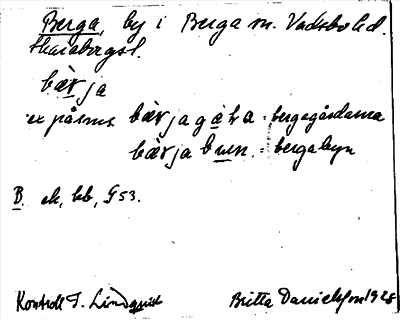 Berga, by i Berga sn. Vadsbo hd.
Skaraborgsl.
bær ja
bær ja gåra = bergagårdarna
bær ja bun. = bergabyn
B. ek, kb, G53.
Kontroll I. Lindquist Britta Danielsson 1928